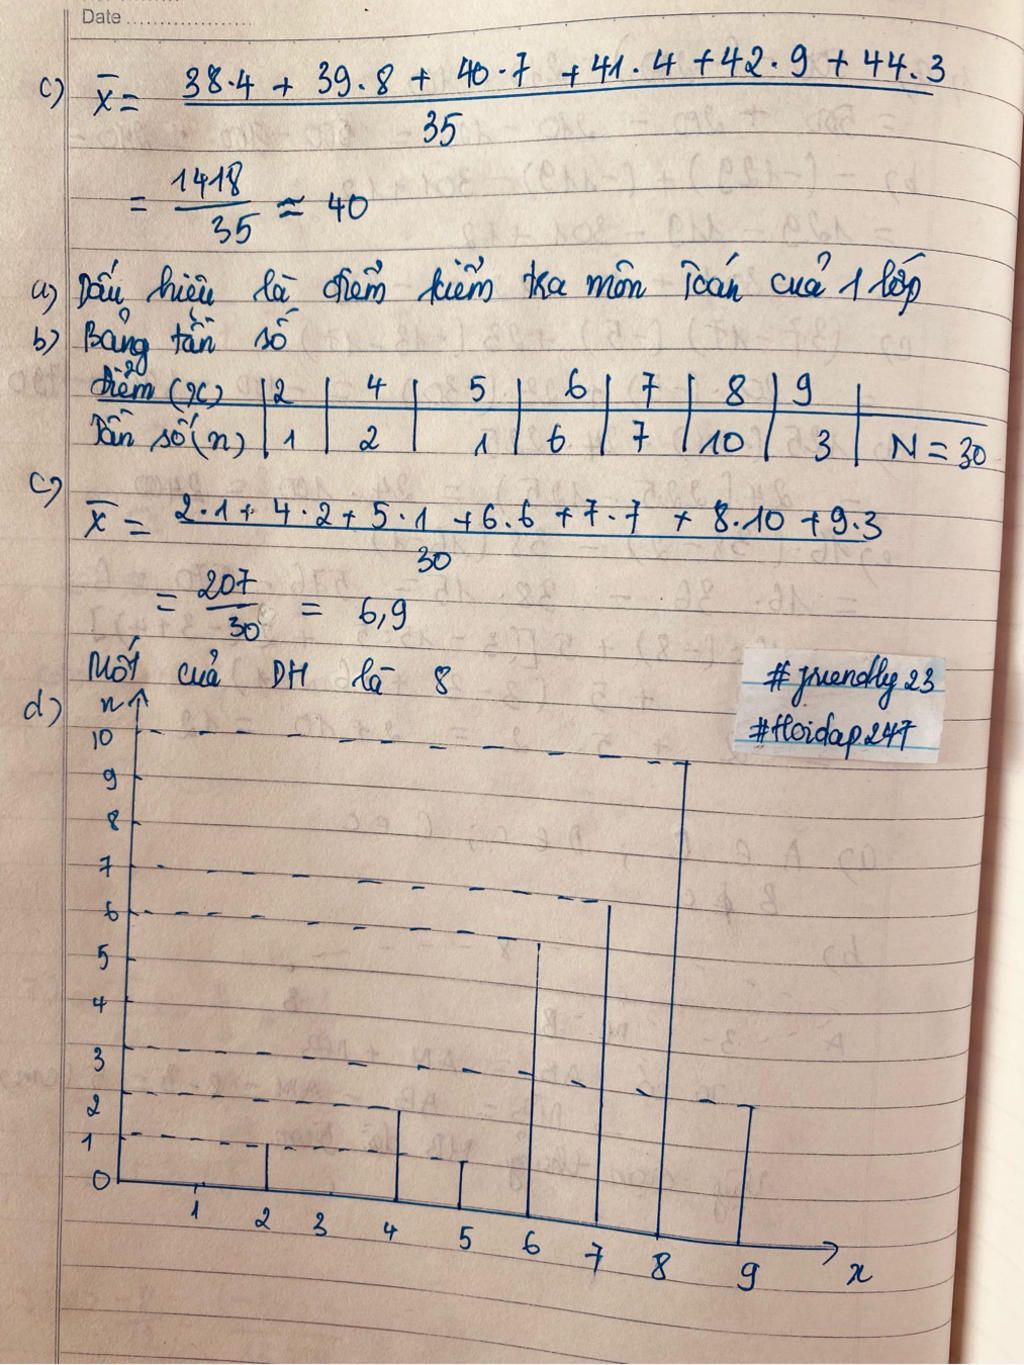 Date
c) x̄ = (38.4 + 39.8 + 40.7 + 41.4 + 42.9 + 44.3) / 35
= 1418 / 35 ≈ 40
a) Dấu hiệu là điểm kiểm tra môn Toán của 1 lớp
b) Bảng tần số
điểm (x) | 2 | 4 | 5 | 6 | 7 | 8 | 9 |
Tần số (n) | 1 | 2 | 1 | 6 | 7 | 10 | 3 | N = 30
c)
x̄ = (2.1 + 4.2 + 5.1 + 6.6 + 7.7 + 8.10 + 9.3) / 30
= 207 / 30 = 6,9
Mốt của DH là 8
#friendly23
#Hoidap247
d) n
10
9
8
7
6
5
4
3
2
1
0
1 2 3 4 5 6 7 8 9 x